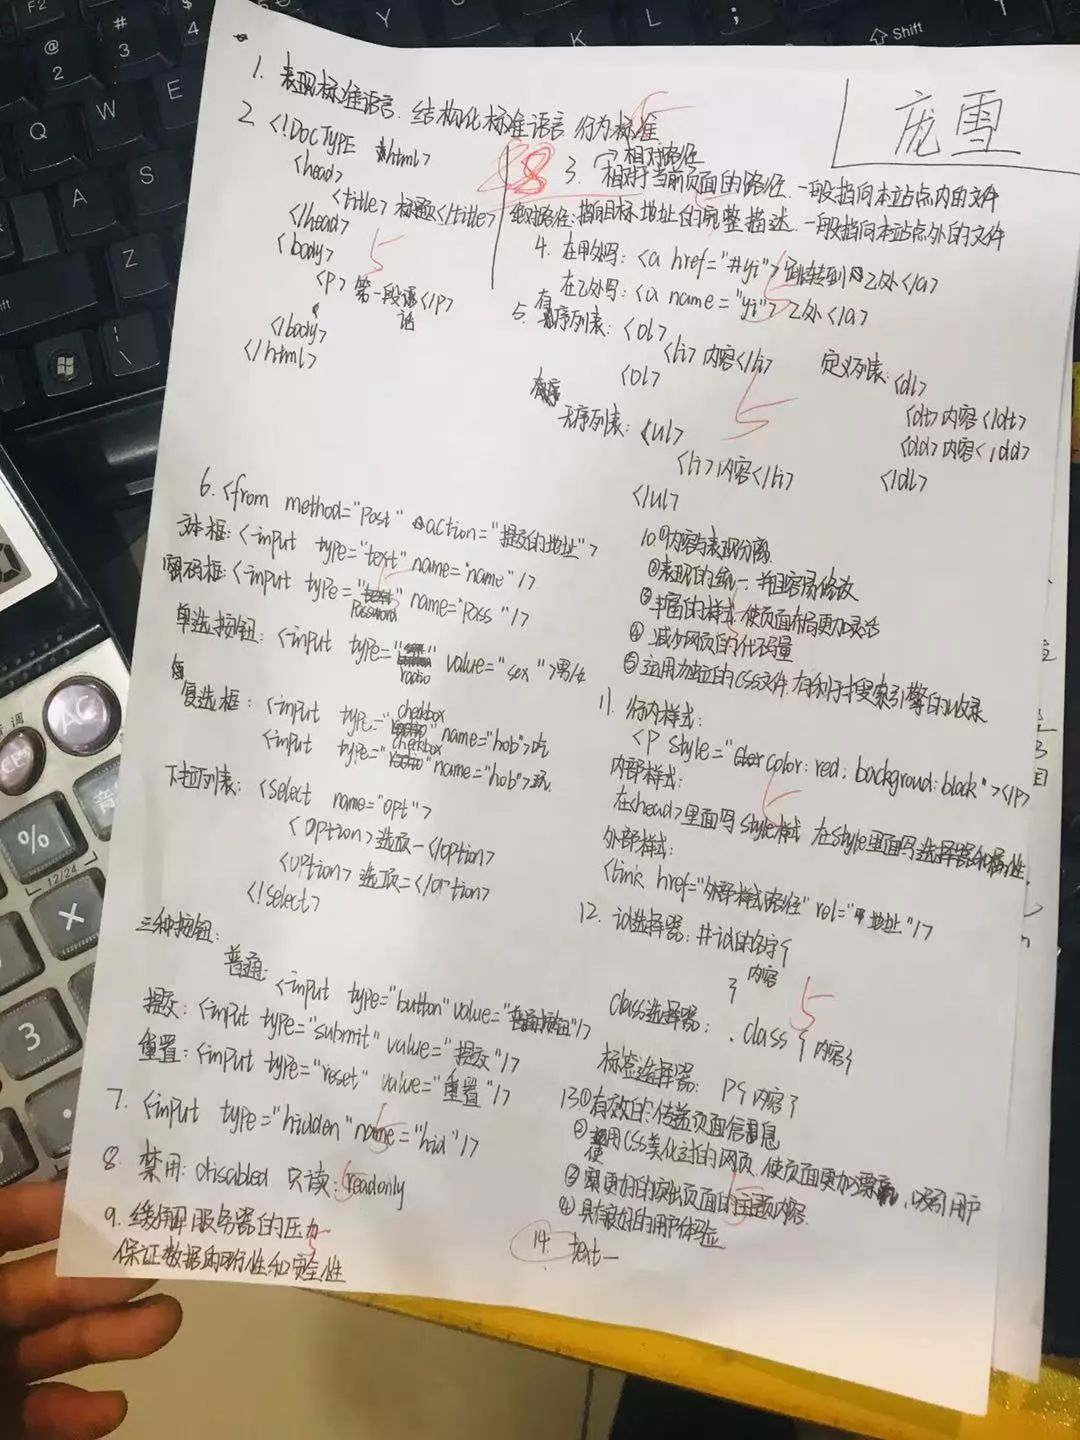 庞雪
1. 表现标准语言. 结构化标准语言 行为标准
2 <!DOCTYPE html>
<head>
<title> 标题</title>
</head>
<body>
<p> 第一段话</p>
</body>
</html>
5
5
88
3. → 相对路径
相对于当前页面的路径. 一段指向本站点内的文件
绝对路径: 指向目标地址的完整描述. 一段指向本站点外的文件
4. 在甲处写: <a href="#yi">跳转到 乙处</a>
在乙处写: <a name="yi"> 乙处</a>
5. 有序列表: <ol>
<li> 内容</li>
<ol>
无序列表: <ul>
<li>内容</li>
</ul>
定义列表: <dl>
<dt>内容</dt>
<dd>内容</dd>
</dl>
5
6. <from method="post" action="提交的地址">
文本框: <input type="text" name="name"/>
密码框: <input type="password" name="pass"/>
单选按钮: <input type="radio" value="sex">男/女
复选框: <input type="checkbox" name="hob">吃
<input type="checkbox" name="hob">玩
下拉列表: <select name="opt">
<option>选项一</option>
<option>选项二</option>
<!select>
三种按钮:
普通: <input type="button" value="普通按钮"/>
提交: <input type="submit" value="提交"/>
重置: <input type="reset" value="重置"/>
7. <input type="hidden" name="hid"/>
8. 禁用: disabled 只读: readonly
9. 缓解服务器的压力
保证数据的可行性和安全性
10.①内容与表现分离
②表现的统一, 并且容易修改
③丰富的样式, 使页面布局更加灵活
④ 减少网页的代码量
⑤ 运用独立的CSS文件, 有利于搜索引擎的收录
11. 行内样式:
<p style="color:red; backgroud:black"></p>
内部样式:
在<head>里面写 style样式 在style里面写选择器和属性.
外部样式:
<link href="外部样式路径" rel="地址"/>
12. id选择器: #id的名字{
内容
}
class选择器: .class { 内容}
标签选择器: p{ 内容}
5
13①有效的传递页面信息
②使用CSS美化过的网页. 使页面更加漂亮, 吸引用户
③更好的突出页面的主题内容.
④ 具有良好的用户体验
14. text—